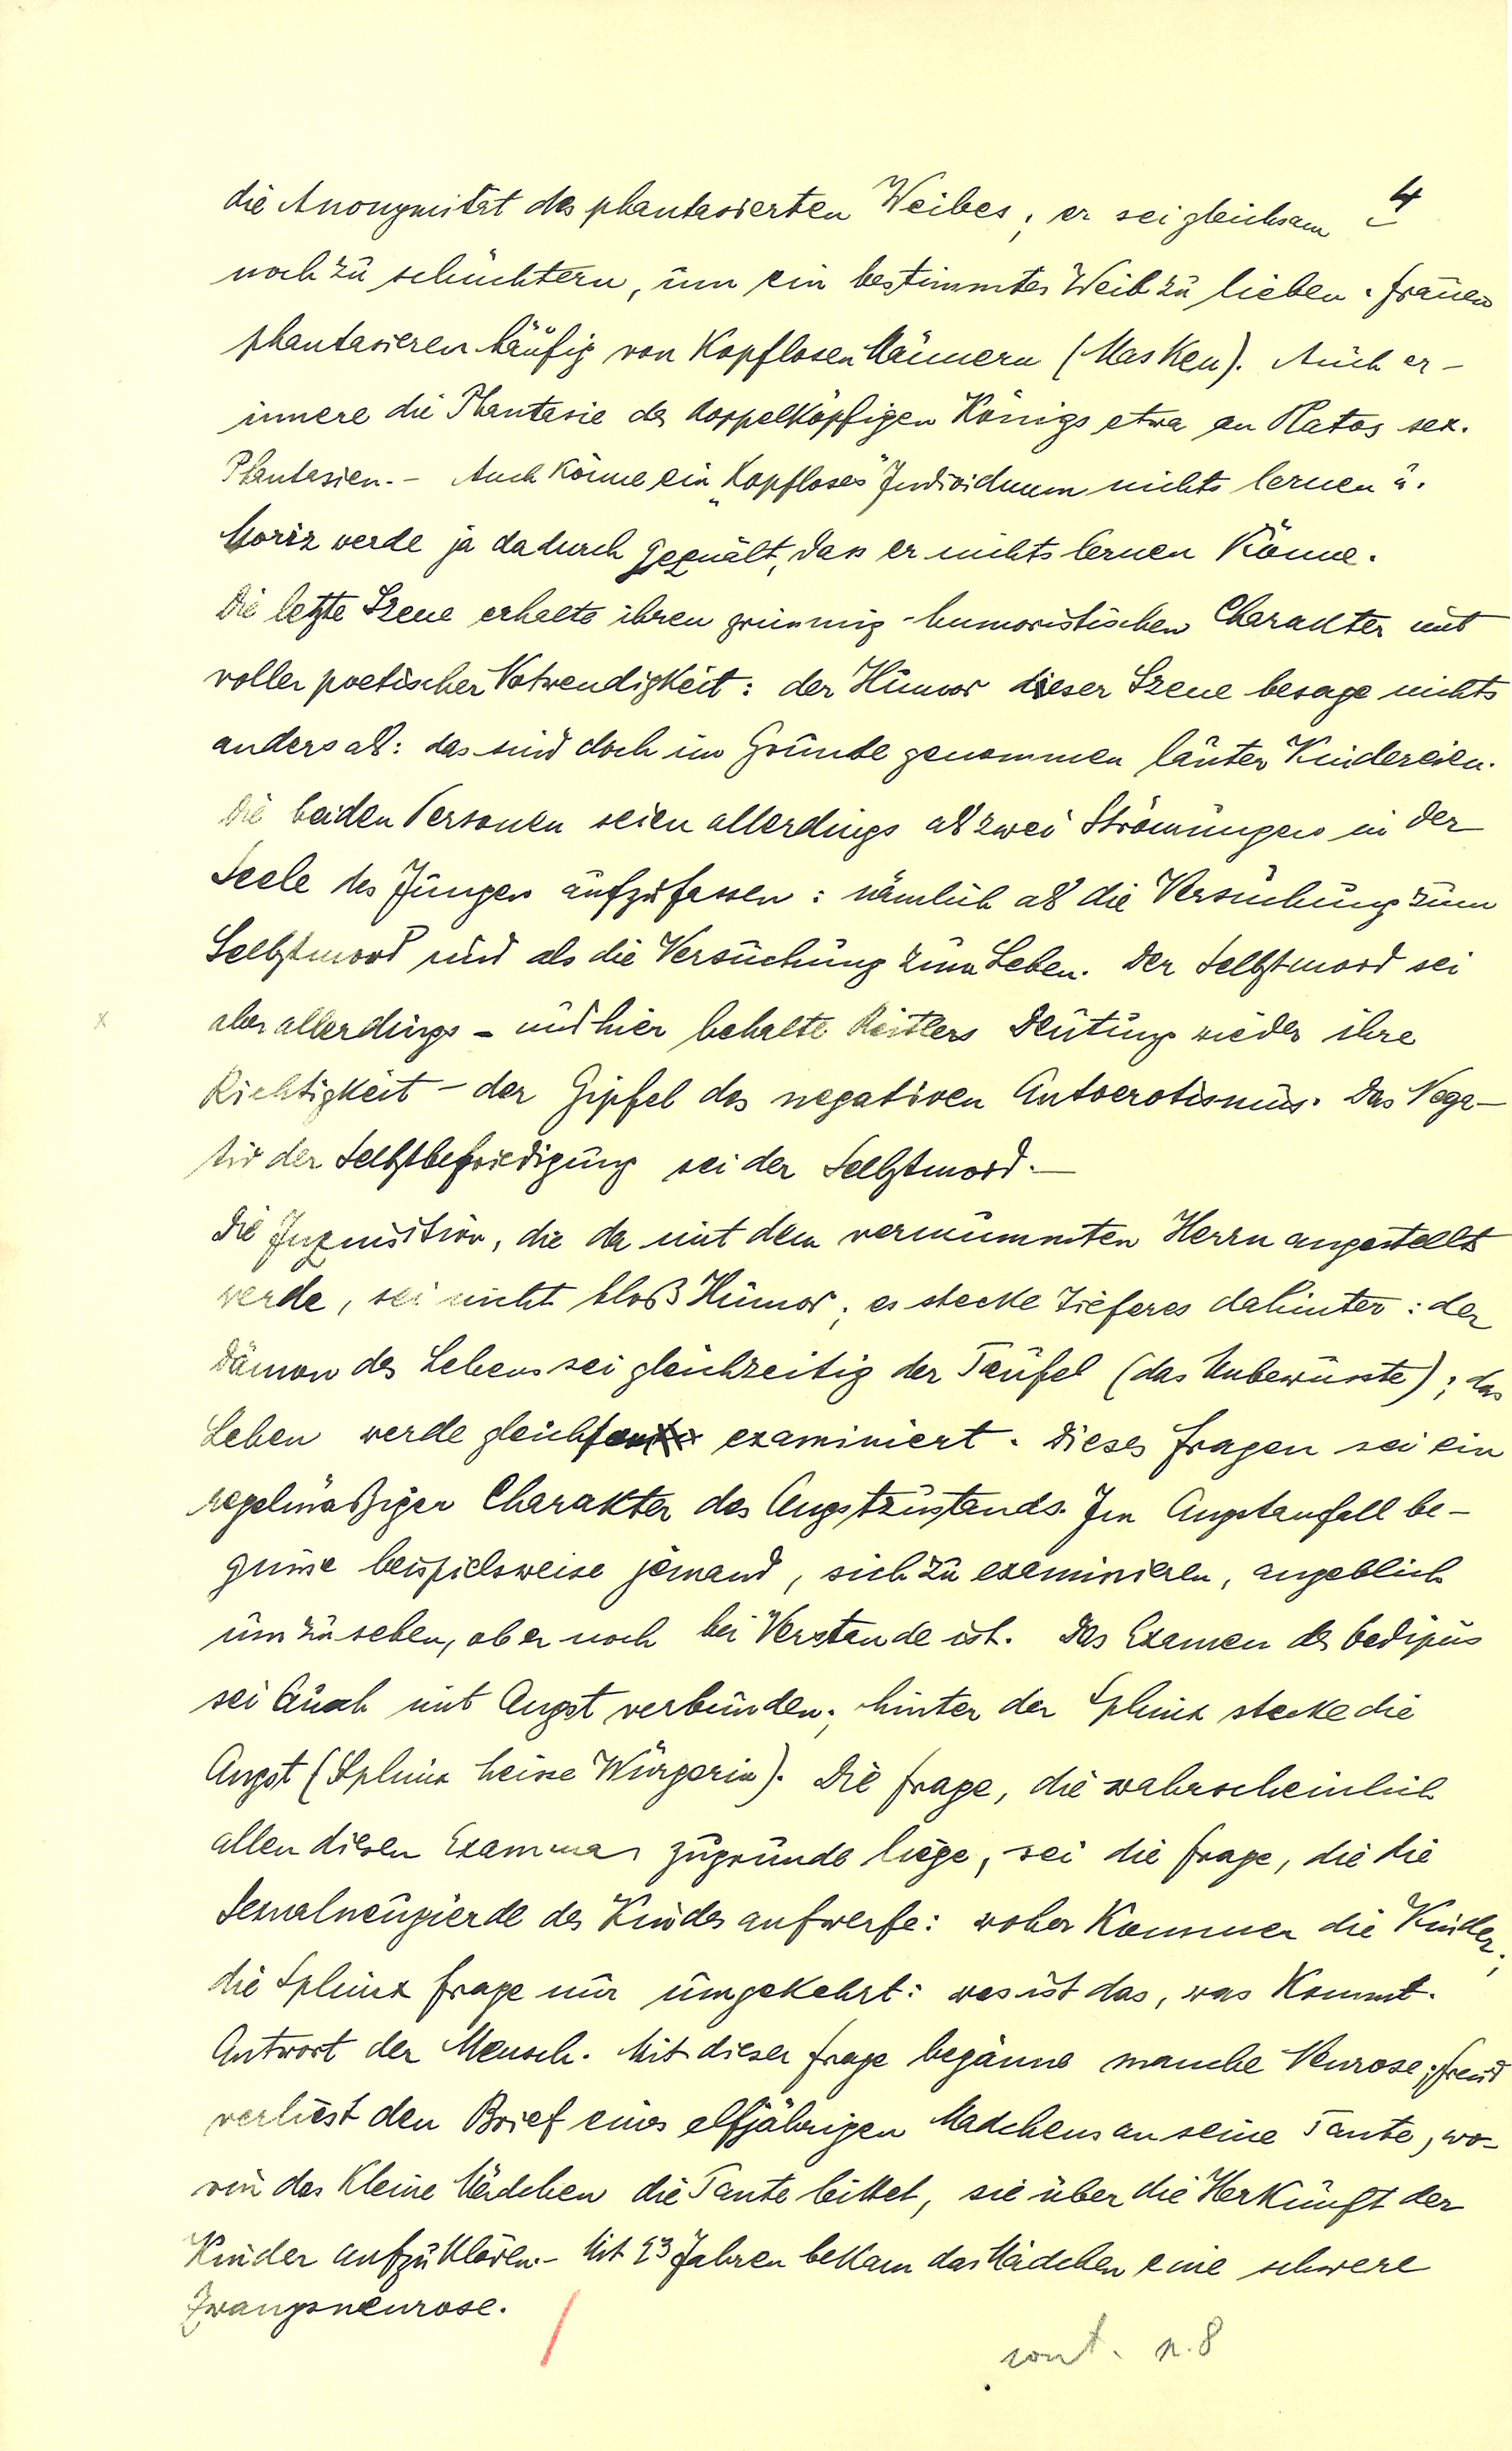 4
die Anonymität des phantasierten Weibes; er sei gleichsam
noch zu schüchtern, um ein bestimmtes Weib zu lieben. Frauen
phantasieren häufig von Kopflosen Männern (Masken). Auch er-
innere die Phantasie des doppelköpfigen Königs etwa an Platos sex.
Phantasien. - Auch Könne ein „Kopfloses" Individuum nichts lernen u.
Moriz werde ja dadurch gequält, dass er nichts lernen Könne.
Die letzte Szene erhalte ihren grimmig-humoristischen Charakter mit
voller poetischer Notwendigkeit: der Humor dieser Szene besage nichts
anders als: das sind doch im Grunde genommen lauter Kindereien.
Die beiden Personen seien allerdings als zwei Strömungen in der
Seele des Jungen aufzufassen: nämlich als die Versuchung zum
Selbstmord und als die Versuchung zum Leben. Der Selbstmord sei
x aber allerdings - und hier behalte Reitlers Deutung wieder ihre
Richtigkeit - der Gipfel des negativen Autoerotismus. Das Nega-
tiv der Selbstbefriedigung sei der Selbstmord. —
Die Inquisition, die da mit dem vermummten Herrn angestellt
werde, sei nicht bloß Humor; es stecke Tieferes dahinter: der
Dämon des Lebens sei gleichzeitig der Teufel (das Unbewusste); das
Leben werde gleichsam examiniert. Dieses Fragen sei ein
regelmäßiger Charakter des Angstzustands. Im Angstanfall be-
ginne beispielsweise jemand, sich zu examinieren, angeblich
um zu sehen, ob er noch bei Verstande ist. Das Examen des Oedipus
sei auch mit Angst verbunden; hinter der Sphinx stecke die
Angst (Sphinx heisse Würgerin). Die Frage, die wahrscheinlich
allen diesen Examinas zugrunde liege, sei die Frage, die die
Sexualneugierde des Kindes aufwerfe: woher Kommen die Kinder;
die Sphinx frage nur umgekehrt: was ist das, was Kommt.
Antwort der Mensch. Mit dieser Frage begänne manche Neurose; Freud
verliest den Brief eines elfjährigen Mädchens an seine Tante, wo-
rin das Kleine Mädchen die Tante bittet, sie über die Herkunft der
Kinder aufzuklären. - Mit 13 Jahren bekam das Mädchen eine schwere
Zwangsneurose.
cont. p. 8